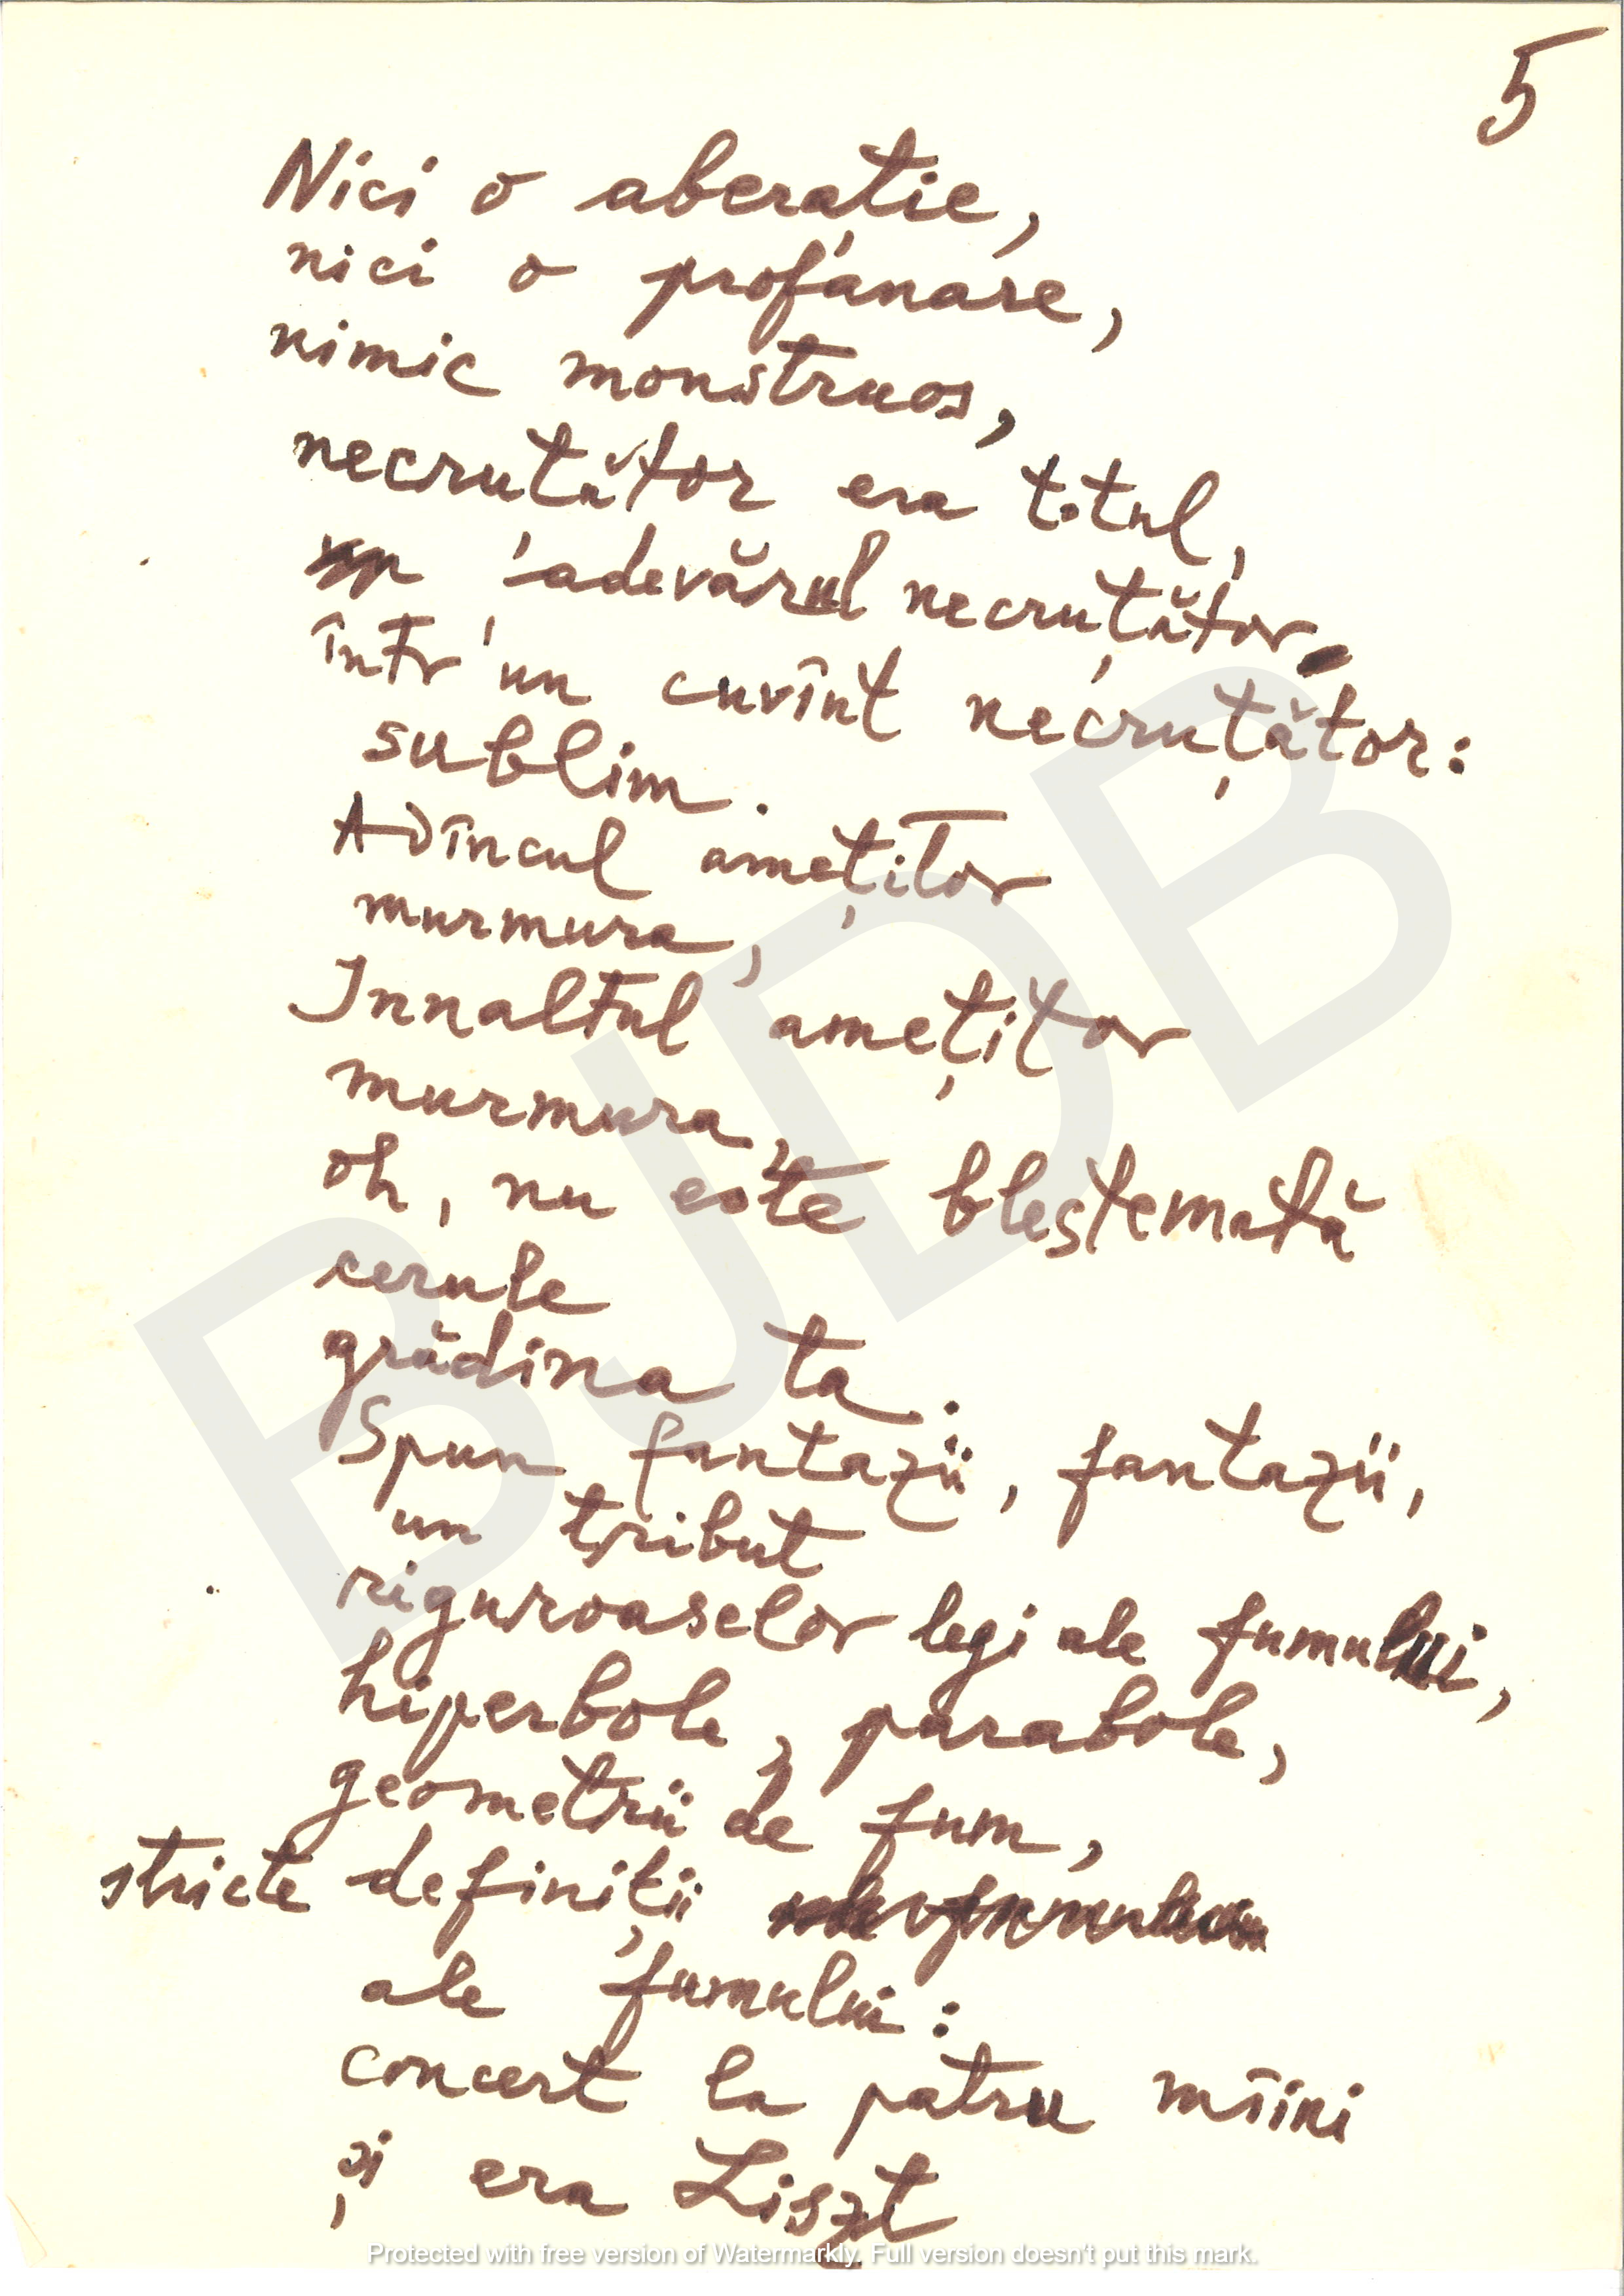 5
Nici o aberație,
nici o profanare,
nimic monstruos,
necruțător era totul,
adevărul necruțător
într'un cuvînt necruțător:
sublim.
Adîncul amețitor
murmura,
Innaltul amețitor
murmura,
oh, nu este blestemată
cerule
grădina ta.
Spun fantazii, fantazii,
un tribut
riguroaselor legi ale fumului,
hiperbole, parabole,
geometrii de fum,
stricte definiții
ale fumului:
concert la patru mîini
și era Liszt
BJDB
Protected with free version of Watermarkly. Full version doesn't put this mark.